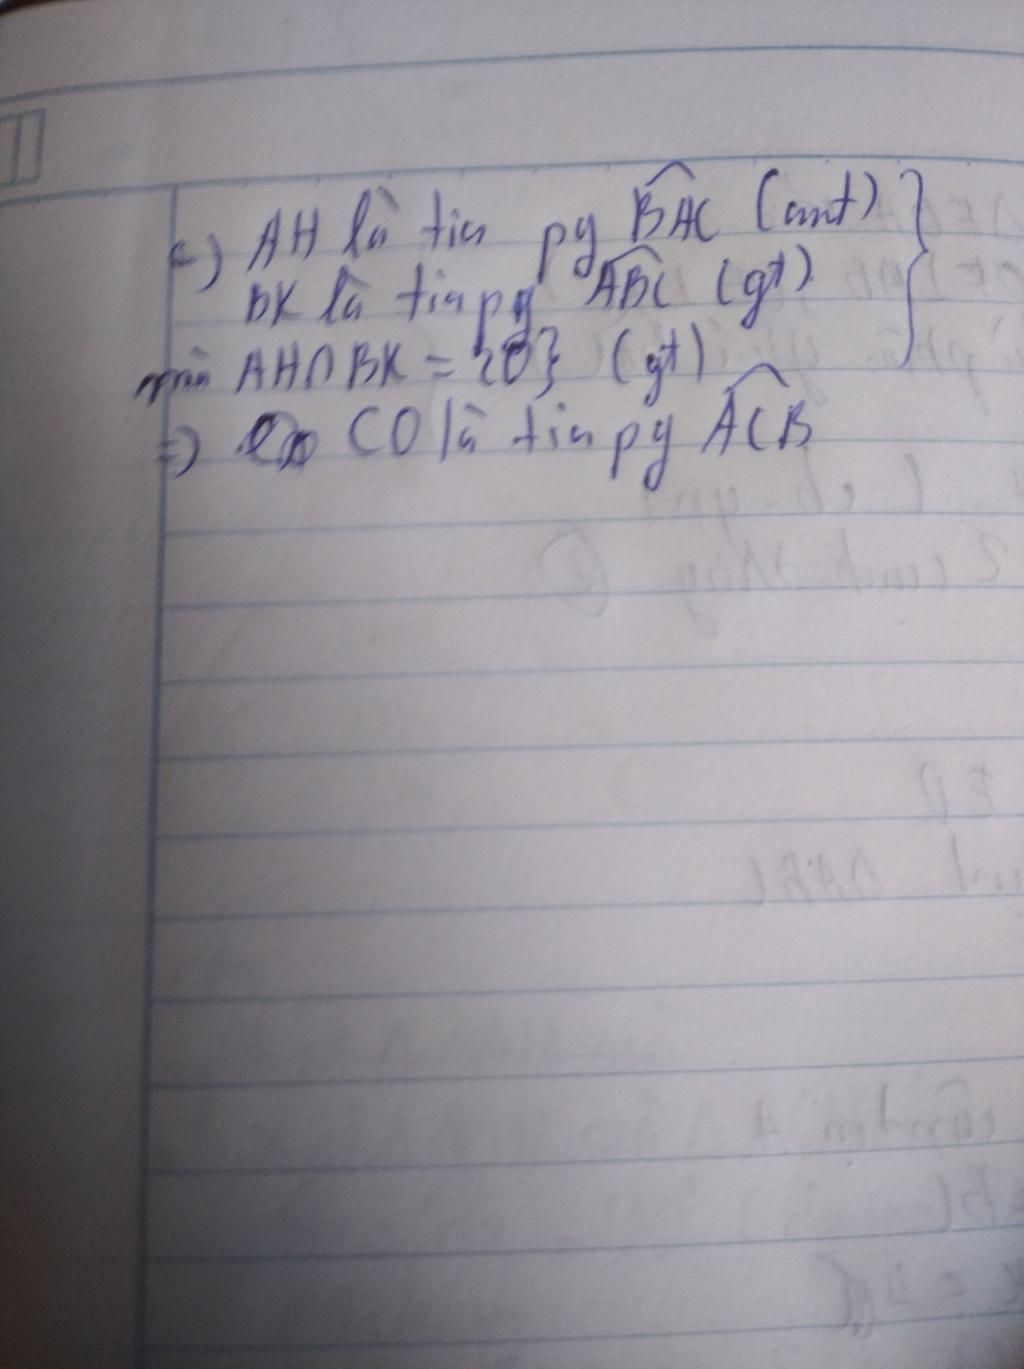 c) AH là tia pg BAC (cmt)
BK là tia pg ABC (gt)
mà AH∩BK = {O} (gt)
=> CO là tia pg ACB